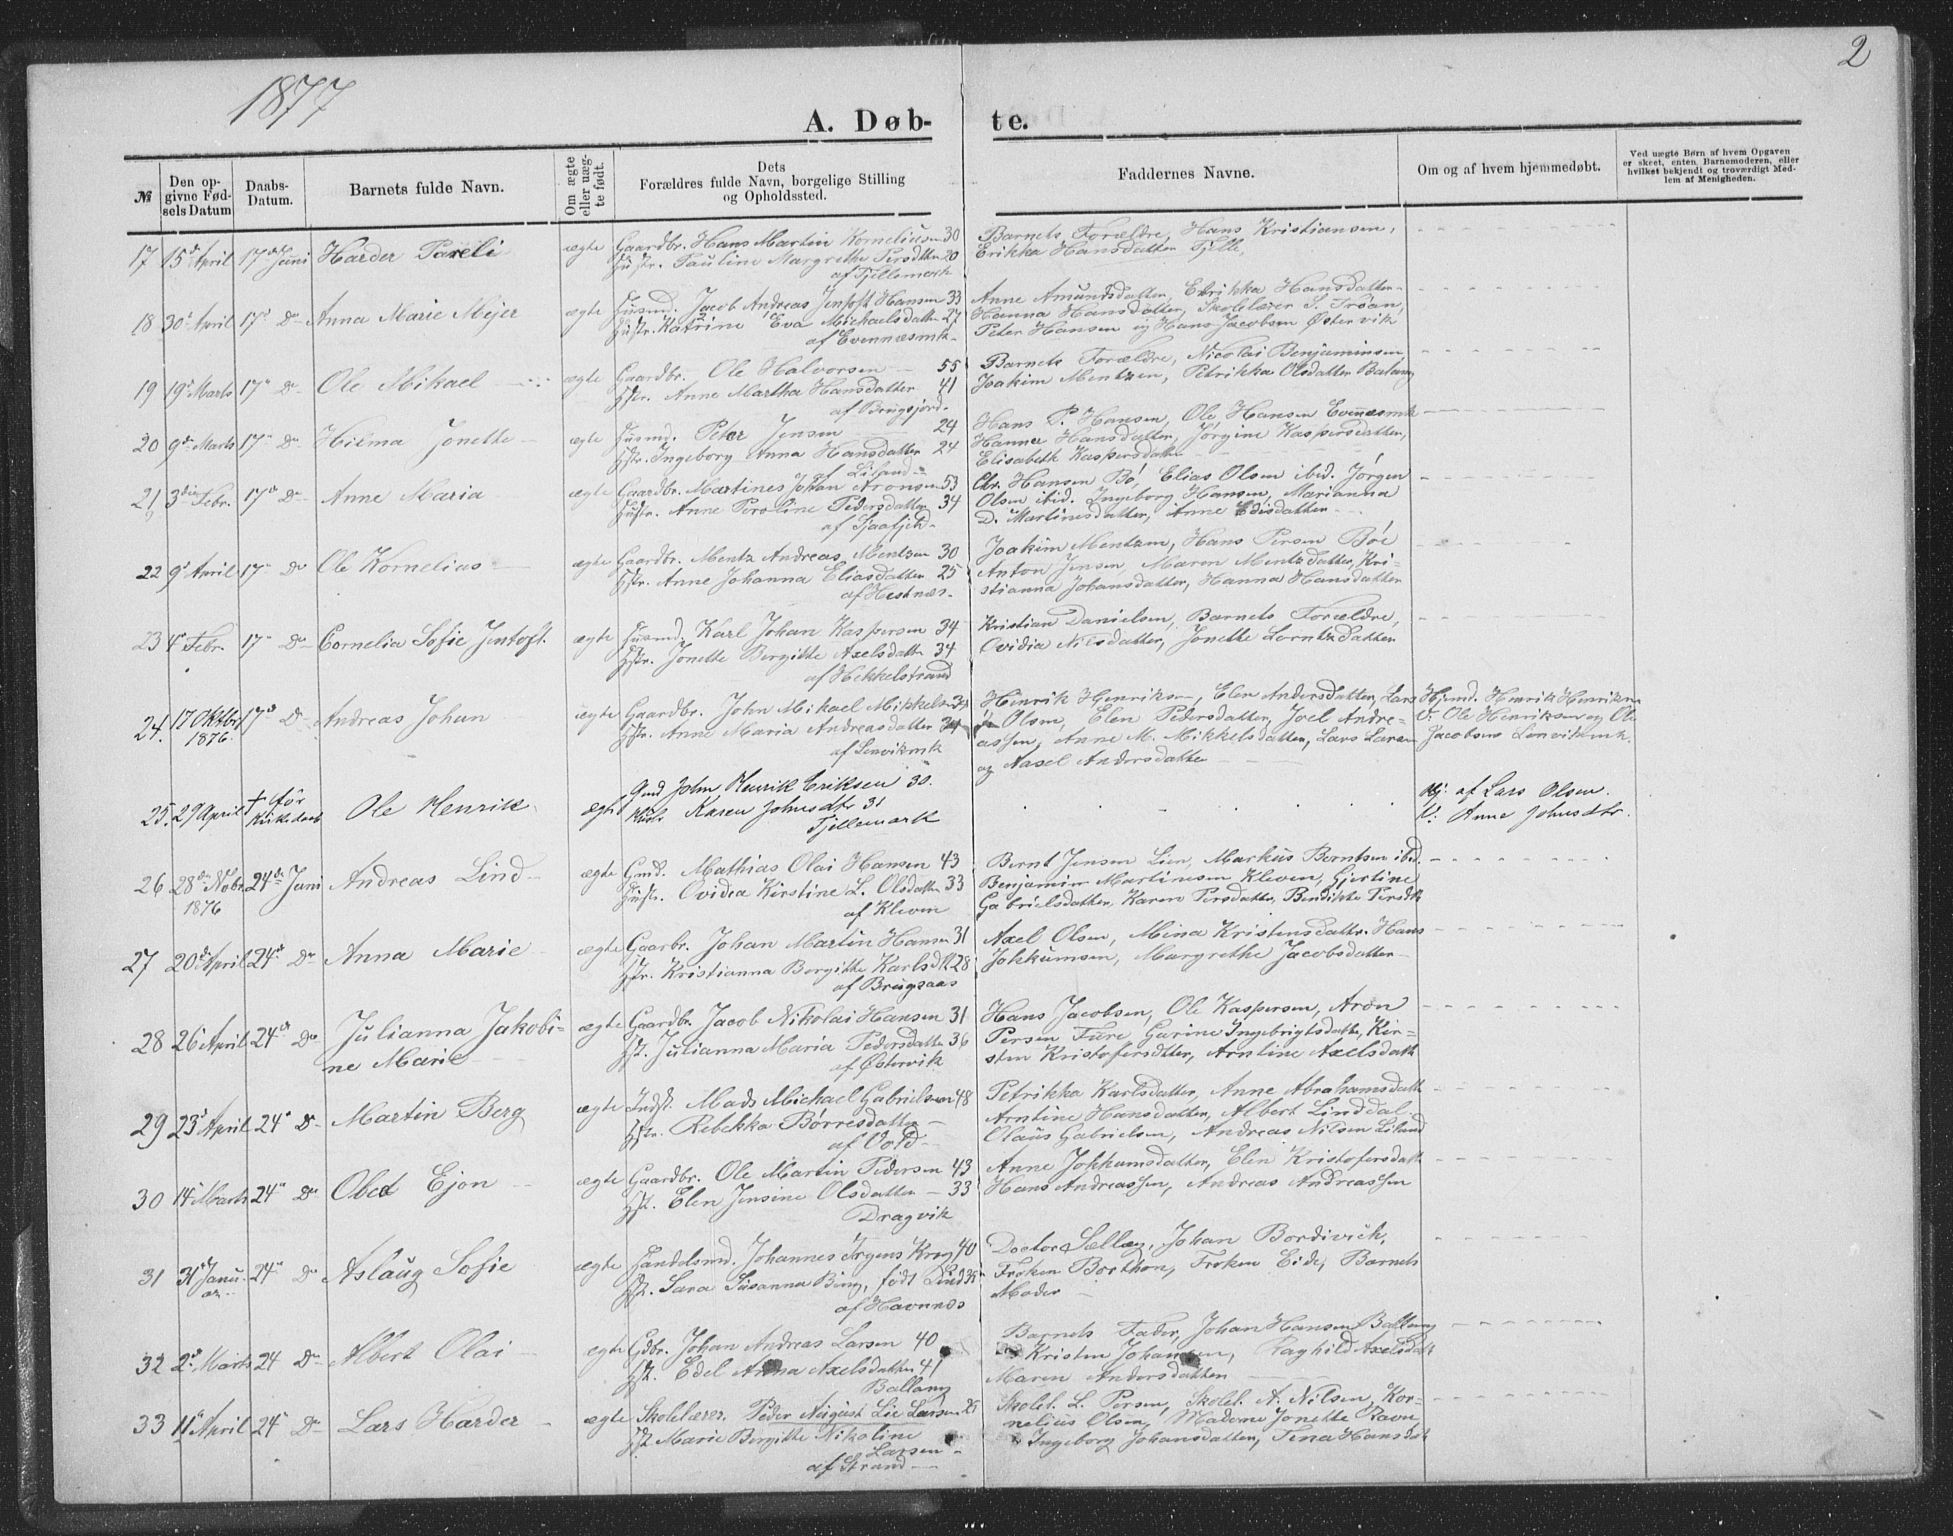 2
1877
A. Døb- te.
№ Den op- givne Fød- sels Datum Daabs- Datum. Barnets fulde Navn. Om ægte eller uæg- te født. Dets Forældres fulde Navn, borgelige Stilling og Opholdssted. Faddernes Navne. Om og af hvem hjemmedøbt. Ved uægte Børn af hvem Opgaven er skeet, enten Barnemoderen, eller hvilket bekjendt og troværdigt Med- lem af Menigheden.
17 15de April 17de Juni Harder Pareli ægte Gaardbr. Hans Martin Korneliusen 30 Barnets Forældre, Hans Kristiansen,
Hustr. Pauline Margrethe Persdtter 20 Erikka Hansdatter Tjelle,
af Tjellemark
18 30te April 17de Do Anna Marie Mejer ægte Husmd. Jacob Andreas Jentoft Hansen 33 Anne Amundsdatter, Elrikka Hansdatter
Hustr. Katrine Eva Michaelsdatter 27 Hanna Hansdatter, Skolelærer S. Troan,
af Evennæsmk. Peter Hansen og Hans Jacobsen Østervik
19 19de Marts 17de Do Ole Mikael ægte Gaardbr. Ole Halvorsen 55 Barnets Forældre, Nicolai Benjaminsen,
Hstr. Anne Martha Hansdatter 41 Joakim Mentzen, Petrikka Olsdatter Balang
af Bringsjord.
20 9de Marts 17de Do Hilma Jonette ægte Husmd. Peter Jensen 24 Hans P. Hansen, Ole Hansen Evenæsmk
Hstr. Ingeborg Anna Hansdatter 24 Hanna Hansdatter, Jørgine Kaspersdatter,
af Liland Elisabeth Kaspersdatter
21 3die Febr. 17de Do Anne Maria ægte Gaardbr. Martines Johan Aronsen 53 Chr. Hansen Bø, Elias Olsen ibid. Jørgen
Hustr. Anne Peroline Pedersdatter 34 Olsen ibid. Ingeborg Hansen, Marianna
D. Martinesdatter, Anne Edisdatter
22 9de April 17de Do Ole Kornelius ægte Gaardbr. Mentz Andreas Mentzen 30 Joakim Mentzen, Hans Persen Bøe
Hstr. Anne Johanna Eliasdatter 25 Anton Jensen, Maren Mentzdatter, Kri-
af Hestnæs. stianna Johansdatter, Hanna Hansdatter
23 4de Febr. 17de Do Cornelia Sofie Jentoft. ægte Husmd. Karl Johan Kaspersen 34 Kristian Danielsen, Barnets Forældre,
Hstr. Jonette Bergitte Axelsdatter 34 Ovidia Nilsdatter, Jonette Lorntzdatter
af Hekkelstrand
24. 17 Oktbr 1876. 17de Do Andreas Johan ægte Gaardbr. John Mikael Mikkelsen 34 Hinrik Henriksen, Elen Andersdatter, Lars Hjemd. Henrik Henriksen
Hstr. Anne Maria Andreasdatter 34 Olsen, Elen Pedersdatter, Joel Andre- V: Ole Henriksen og Ole
af Lenvikmk assen, Anne M. Mikkelsdatter, Lars Larsen Jacobsen Lenvikmk.
og Nasel Andersdatter
25. 29 April † før Kirkedaab Ole Henrik ægte Gmd John Henrik Eriksen 30. Hj. af Lars Olsen.
Hustr Karen Johnsdtr 31 V: Anne Johnsdtr.
Tjellemark
26 28de Novbr 1876 24de Juni Andreas Lind ægte Gmd. Mathias Olai Hansen 43 Bernt Jensen Lien, Markus Berntsen ibid.
Hustr. Ovidia Kirstine L. Olsdatter 33 Benjamin Martinesen Kleven, Gjertine
af Kleven Gabrielsdatter, Karen Persdatter, Bendikte Persdtr
27 20de April 24de Do Anna Marie ægte Gaarbr. Johan Martin Hansen 31 Axel Olsen, Mina Kristensdatter, Hans
Hstr. Kristianna Bergitte Karlsdtr 28 Johkumsen, Margrethe Jacobsdatter
af Bringsaas
28 26de April 24de Do Julianna Jakobi- ne Marie ægte Gaardbr. Jacob Nikolai Hansen 31 Hans Jacobsen, Ole Kaspersen, Aron
Hst. Julianna Maria Pedersdatter 36 Persen Fure, Garine Ingebrigtsdatter, Kir-
af Østervik sten Kristofersdtter, Arntine Axelsdatt
29 23de April 24de Do Martin Berg ægte Indst. Mads Michael Gabrielsen 48 Petrikka Karlsdatter, Anne Abrahamsdatt
Hstr. Rebekka Børresdatter Arntine Hansdatter, Albert Linddal.
af Vold Olaus Gabrielsen, Andreas Nilsen Liland
30 14de Marts 24de Do Obed Ejon ægte Gaardbr. Ole Martin Pedersen 43 Anne Johkumsdatter, Elen Kristofersdatt
Hst. Elen Jensine Olsdatter 33 Hans Andreassen, Andreas Andreassen
Dragvik
31 31te Janu- ar. 24de Do Aslaug Sofie ægte Handelsmd. Johannes Jrgens Krog 40 Doctor Sellæg, Johan Bordivich,
Hst. Sara Susanna Bing, født Lind Frøken Borthon, Frøken Eide, Barnets
af Havnnæs Moder
32 2de Marts 24 Do Albert Olai ægte Gdbr. Johan Andreas Larsen 40 Barnets Fader, Johan Hansen Ballang
Hst. Edel Anna Axelsdatter 41 Kristen Johansen, Raghild Axelsdatt
Ballang Maren Andersdatter
33 11te April 24de Do Lars Harder ægte Skolelærer. Peder August Lie Larsen 29 Skolel. L. Persen, Skolel. A. Nilsen, Kor-
Hst Marie Bergitte Nikoline nelius Olsen, Madame Jonette Ravn,
Larsen Ingeborg Johansdatter, Tena Hansdat
af Strand